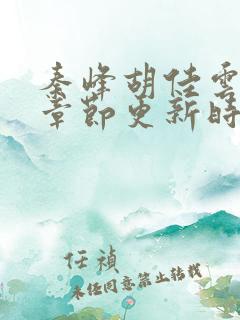 秦峰胡佳雲
章節更新時
任禎
未经同意禁止转载